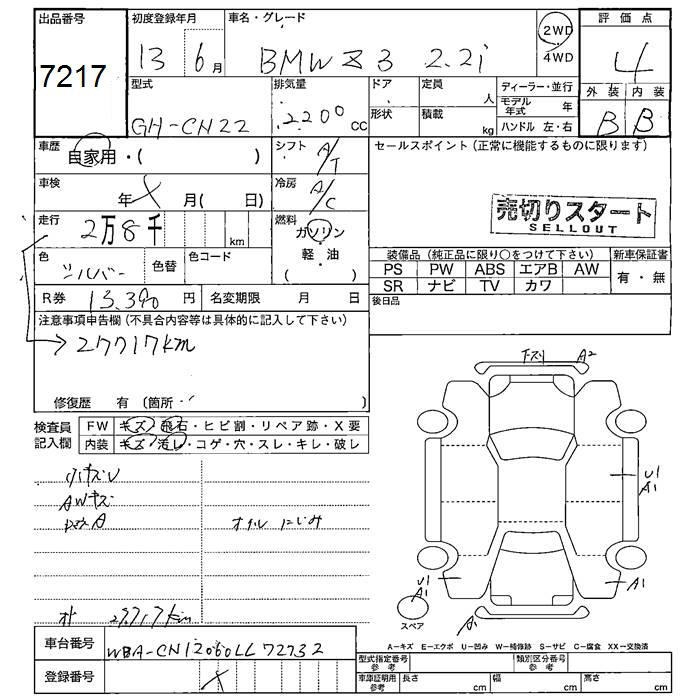 出品番号 初度登録年月 車名・グレード 2WD 評価点
7217 13 6月 BMW Z3 2.2i 4WD 4
型式 排気量 ドア 定員 人 ディーラー・並行 外装 内装
GH-CN22 2200 cc 形状 積載 kg モデル年式 年 B B
ハンドル 左・右
車歴 自家用・( ) シフト A/T セールスポイント(正常に機能するものに限ります)
車検 年 月( 日) 冷房 A/C
走行 2万8千 km 燃料 ガソリン・軽油
売切りスタート
SELLOUT
色 シルバー 色替 色コード 装備品(純正品に限り○をつけて下さい) 新車保証書
PS PW ABS エアB AW 有・無
SR ナビ TV カワ
R券 13,390 円 名変期限 月 日 後日品
注意事項申告欄(不具合内容等は具体的に記入して下さい)
→27717km
修復歴 有(箇所・ )
下スリ A2
検査員記入欄 FW キズ・飛石・ヒビ割・リペア跡・X要
内装 キズ・汚レ・コゲ・穴・スレ・キレ・破レ
U1
A1
AWキズ
オイルにじみ
U1
A1
A1
スペア
A1
27717km
A−キズ E−エクボ U−凹み W−補修跡 S−サビ C−腐食 XX−交換済
車台番号 WBA-CN12060LL72732
型式指定番号 参考 類別区分番号 参考
登録番号
車庫証明用 参考 長さ cm 幅 cm 高さ cm